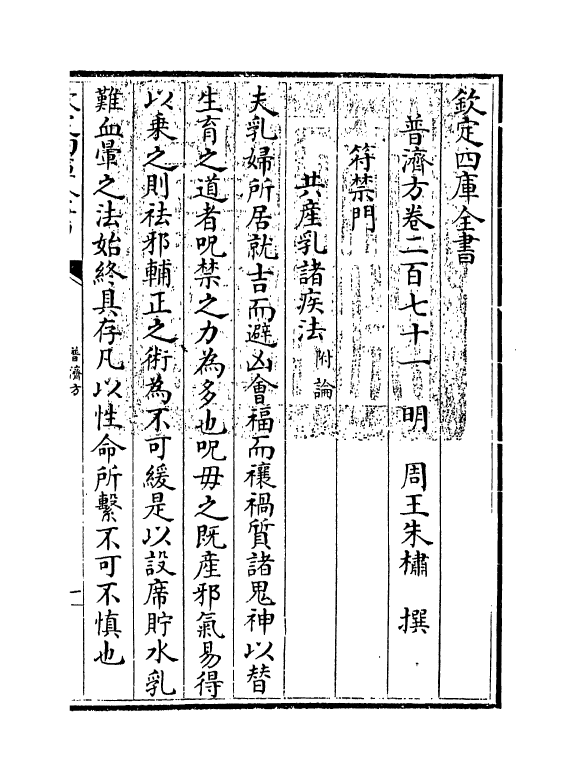 欽定四庫全書
普濟方卷二百七十一　明　周王朱橚　撰
符禁門
共産乳諸疾法附論
夫乳婦所居就吉而避凶會福而禳禍質諸鬼神以替
生育之道者呪禁之力為多也呪毋之既産邪氣易得
以乗之則祛邪輔正之術為不可緩是以設席貯水乳
難血暈之法始終具存凡以性命所繫不可不慎也
普濟方
一